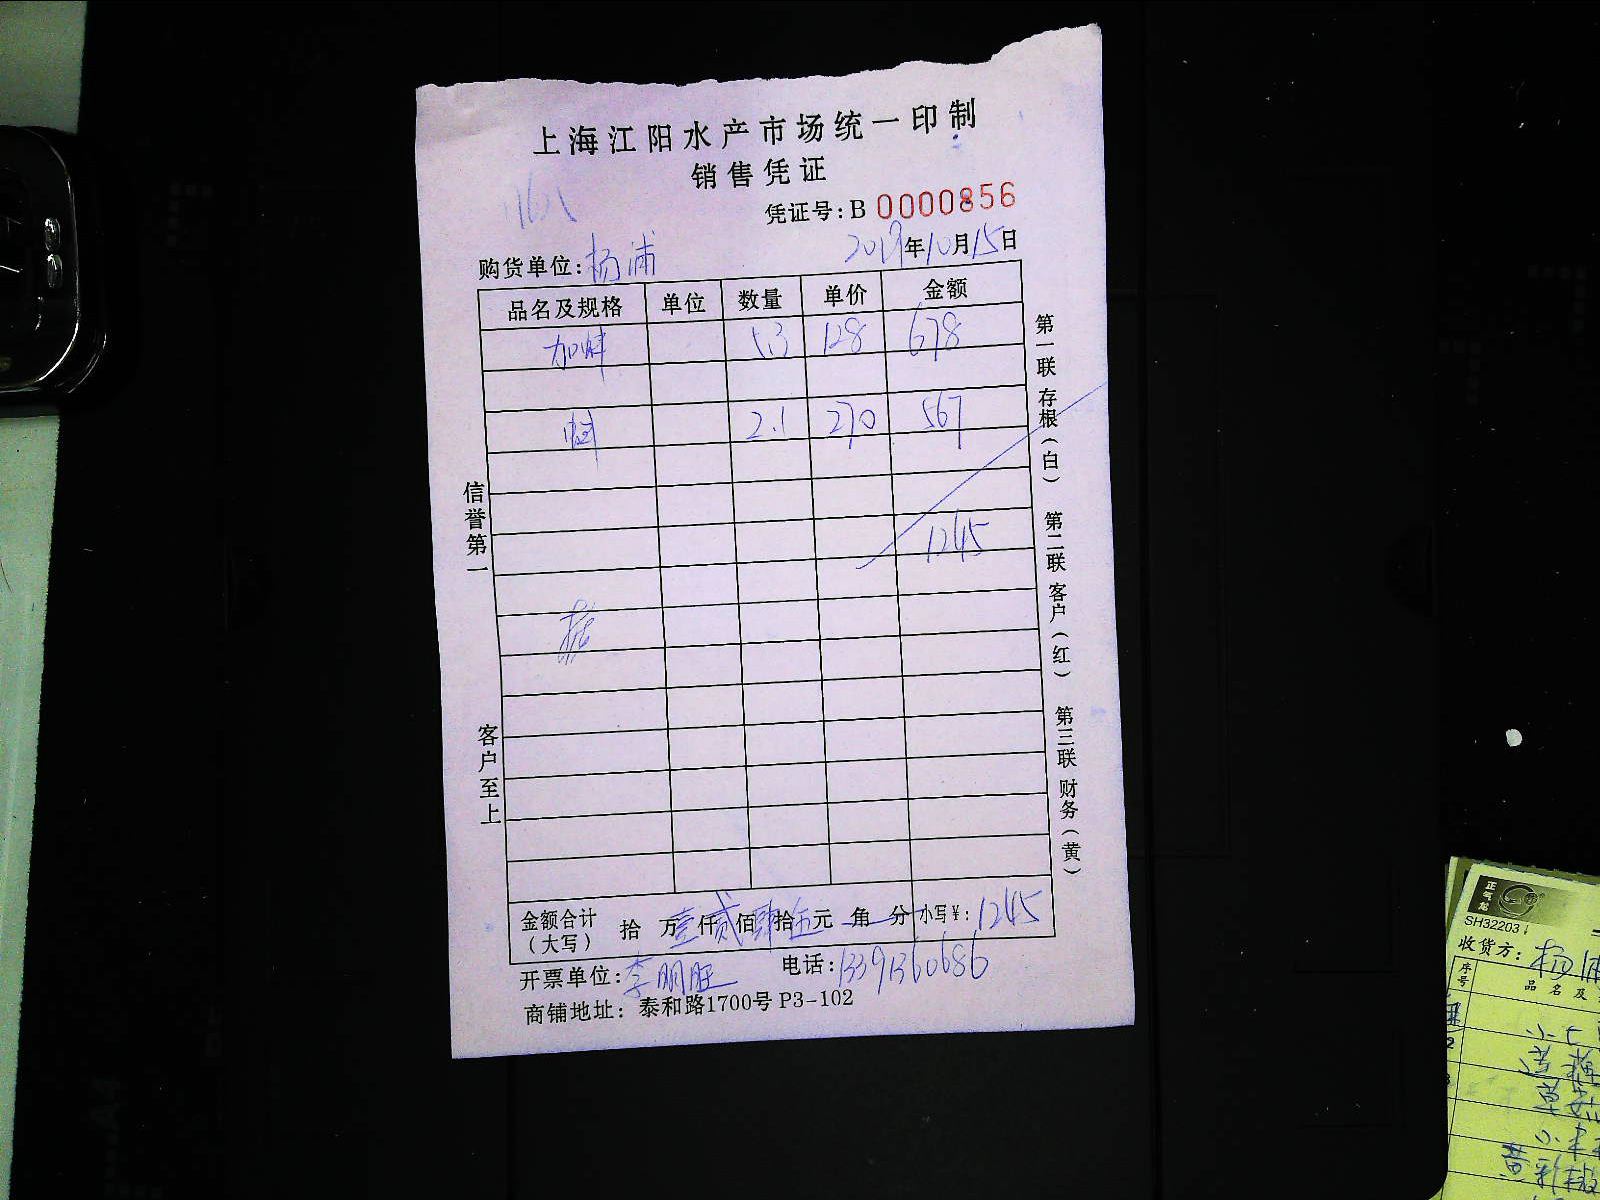 上海江阳水产市场统一印制
销售凭证
凭证号:B 0000856
2019年10月15日
购货单位:杨浦
品名及规格 单位 数量 单价 金额
加 5.3 128 678
2.1 270 567
1245
信誉第一
客户至上
第一联 存根(白) 第二联 客户(红) 第三联 财务(黄)
金额合计(大写) 拾 万壹仟贰佰肆拾伍元 角 分 小写¥: 1245
开票单位:李朋旺 电话:13391360686
商铺地址: 泰和路1700号 P3-102
正气龙
SH32203
收货方: 杨浦
序号 品名及